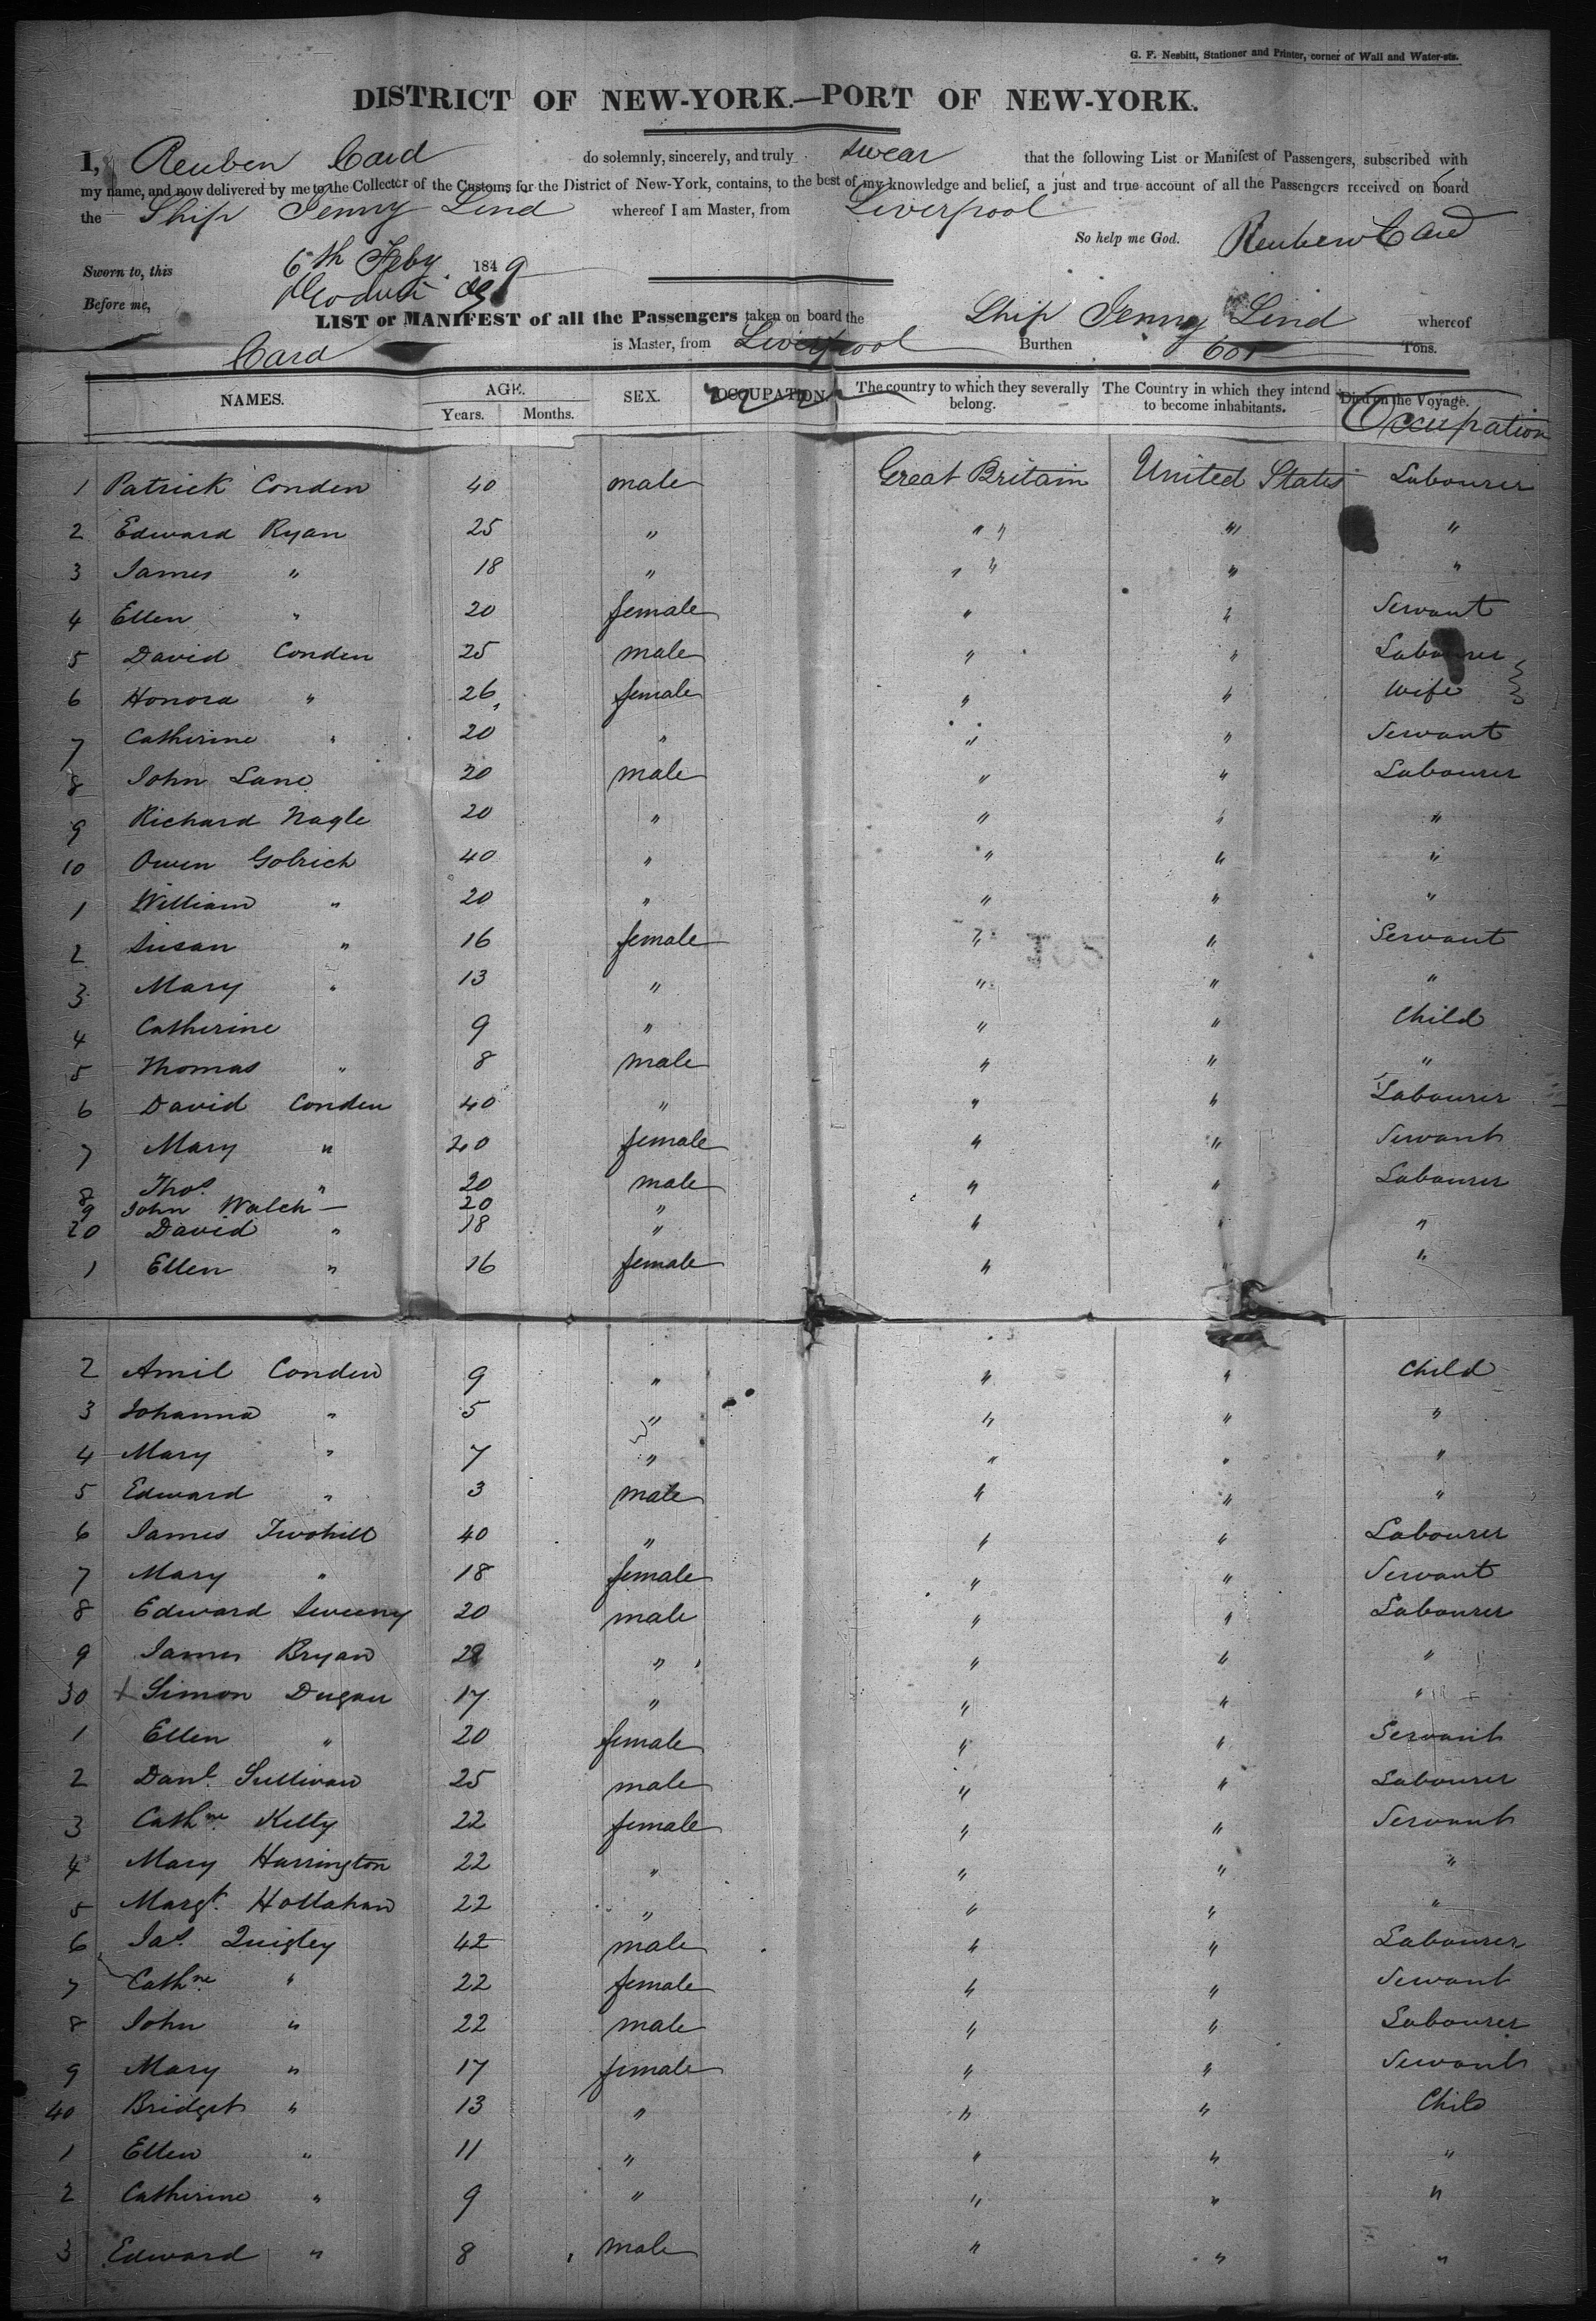 G. F. Nesbitt, Stationer and Printer, corner of Wall and Water-sts.
DISTRICT OF NEW-YORK.—PORT OF NEW-YORK.
I, Reuben Card do solemnly, sincerely, and truly swear that the following List or Manifest of Passengers, subscribed with
my name, and now delivered by me to the Collector of the Customs for the District of New-York, contains, to the best of my knowledge and belief, a just and true account of all the Passengers received on board
the Ship Jenny Lind whereof I am Master, from Liverpool
So help me God. Reuben Card
Sworn to, this 6th Feby. 1849
Before me,
LIST or MANIFEST of all the Passengers taken on board the Ship Jenny Lind whereof
Card is Master, from Liverpool Burthen 601 Tons.
NAMES. AGE. Years. Months. SEX. OCCUPATION. The country to which they severally belong. The Country in which they intend to become inhabitants. Died on the Voyage. Occupation
1 Patrick Conden 40 male Great Britain United States Labourer
2 Edward Ryan 25 " " " " "
3 James " 18 " " " " "
4 Ellen " 20 female " " Servant
5 David Conden 25 male " " Labourer
6 Honora " 26 female " " Wife
7 Catherine " 20 " " " Servant
8 John Lane 20 male " " Labourer
9 Richard Nagle 20 " " " "
10 Owen Golrich 40 " " " "
1 William " 20 " " " "
2 Susan " 16 female " " Servant
3 Mary " 13 " " " "
4 Catherine 9 " " " Child
5 Thomas " 8 male " " "
6 David Conden 40 " " " Labourer
7 Mary " 20 female " " Servant
8 Thos. " 20 male " " Labourer
9 John Walch — 20 "
20 David " 18 " " " "
1 Ellen " 16 female " "
2 Amil Conden 9 " " " Child
3 Johanna " 5 " " " "
4 Mary " 7 " " " "
5 Edward " 3 male " " "
6 James Twohill 40 " " " Labourer
7 Mary " 18 female " " Servant
8 Edward Sweeny 20 male " " Labourer
9 James Bryan " " " "
30 Simon Dugan 17 " " " "
1 Ellen " 20 female " " Servant
2 Danl. Sullivan 25 male " " Labourer
3 Cathne. Kelly 22 female " " Servant
4 Mary Harrington 22 " " " "
5 Margt. Hollahan 22 " " " "
6 Jas. Quigley 42 male " " Labourer
7 Cathne. " 22 female " " Servant
8 John " 22 male " " Labourer
9 Mary " 17 female " " Servant
40 Bridget " 13 " " " Child
1 Ellen " 11 " " " "
2 Catherine " 9 " " " "
3 Edward " 8 male " " "